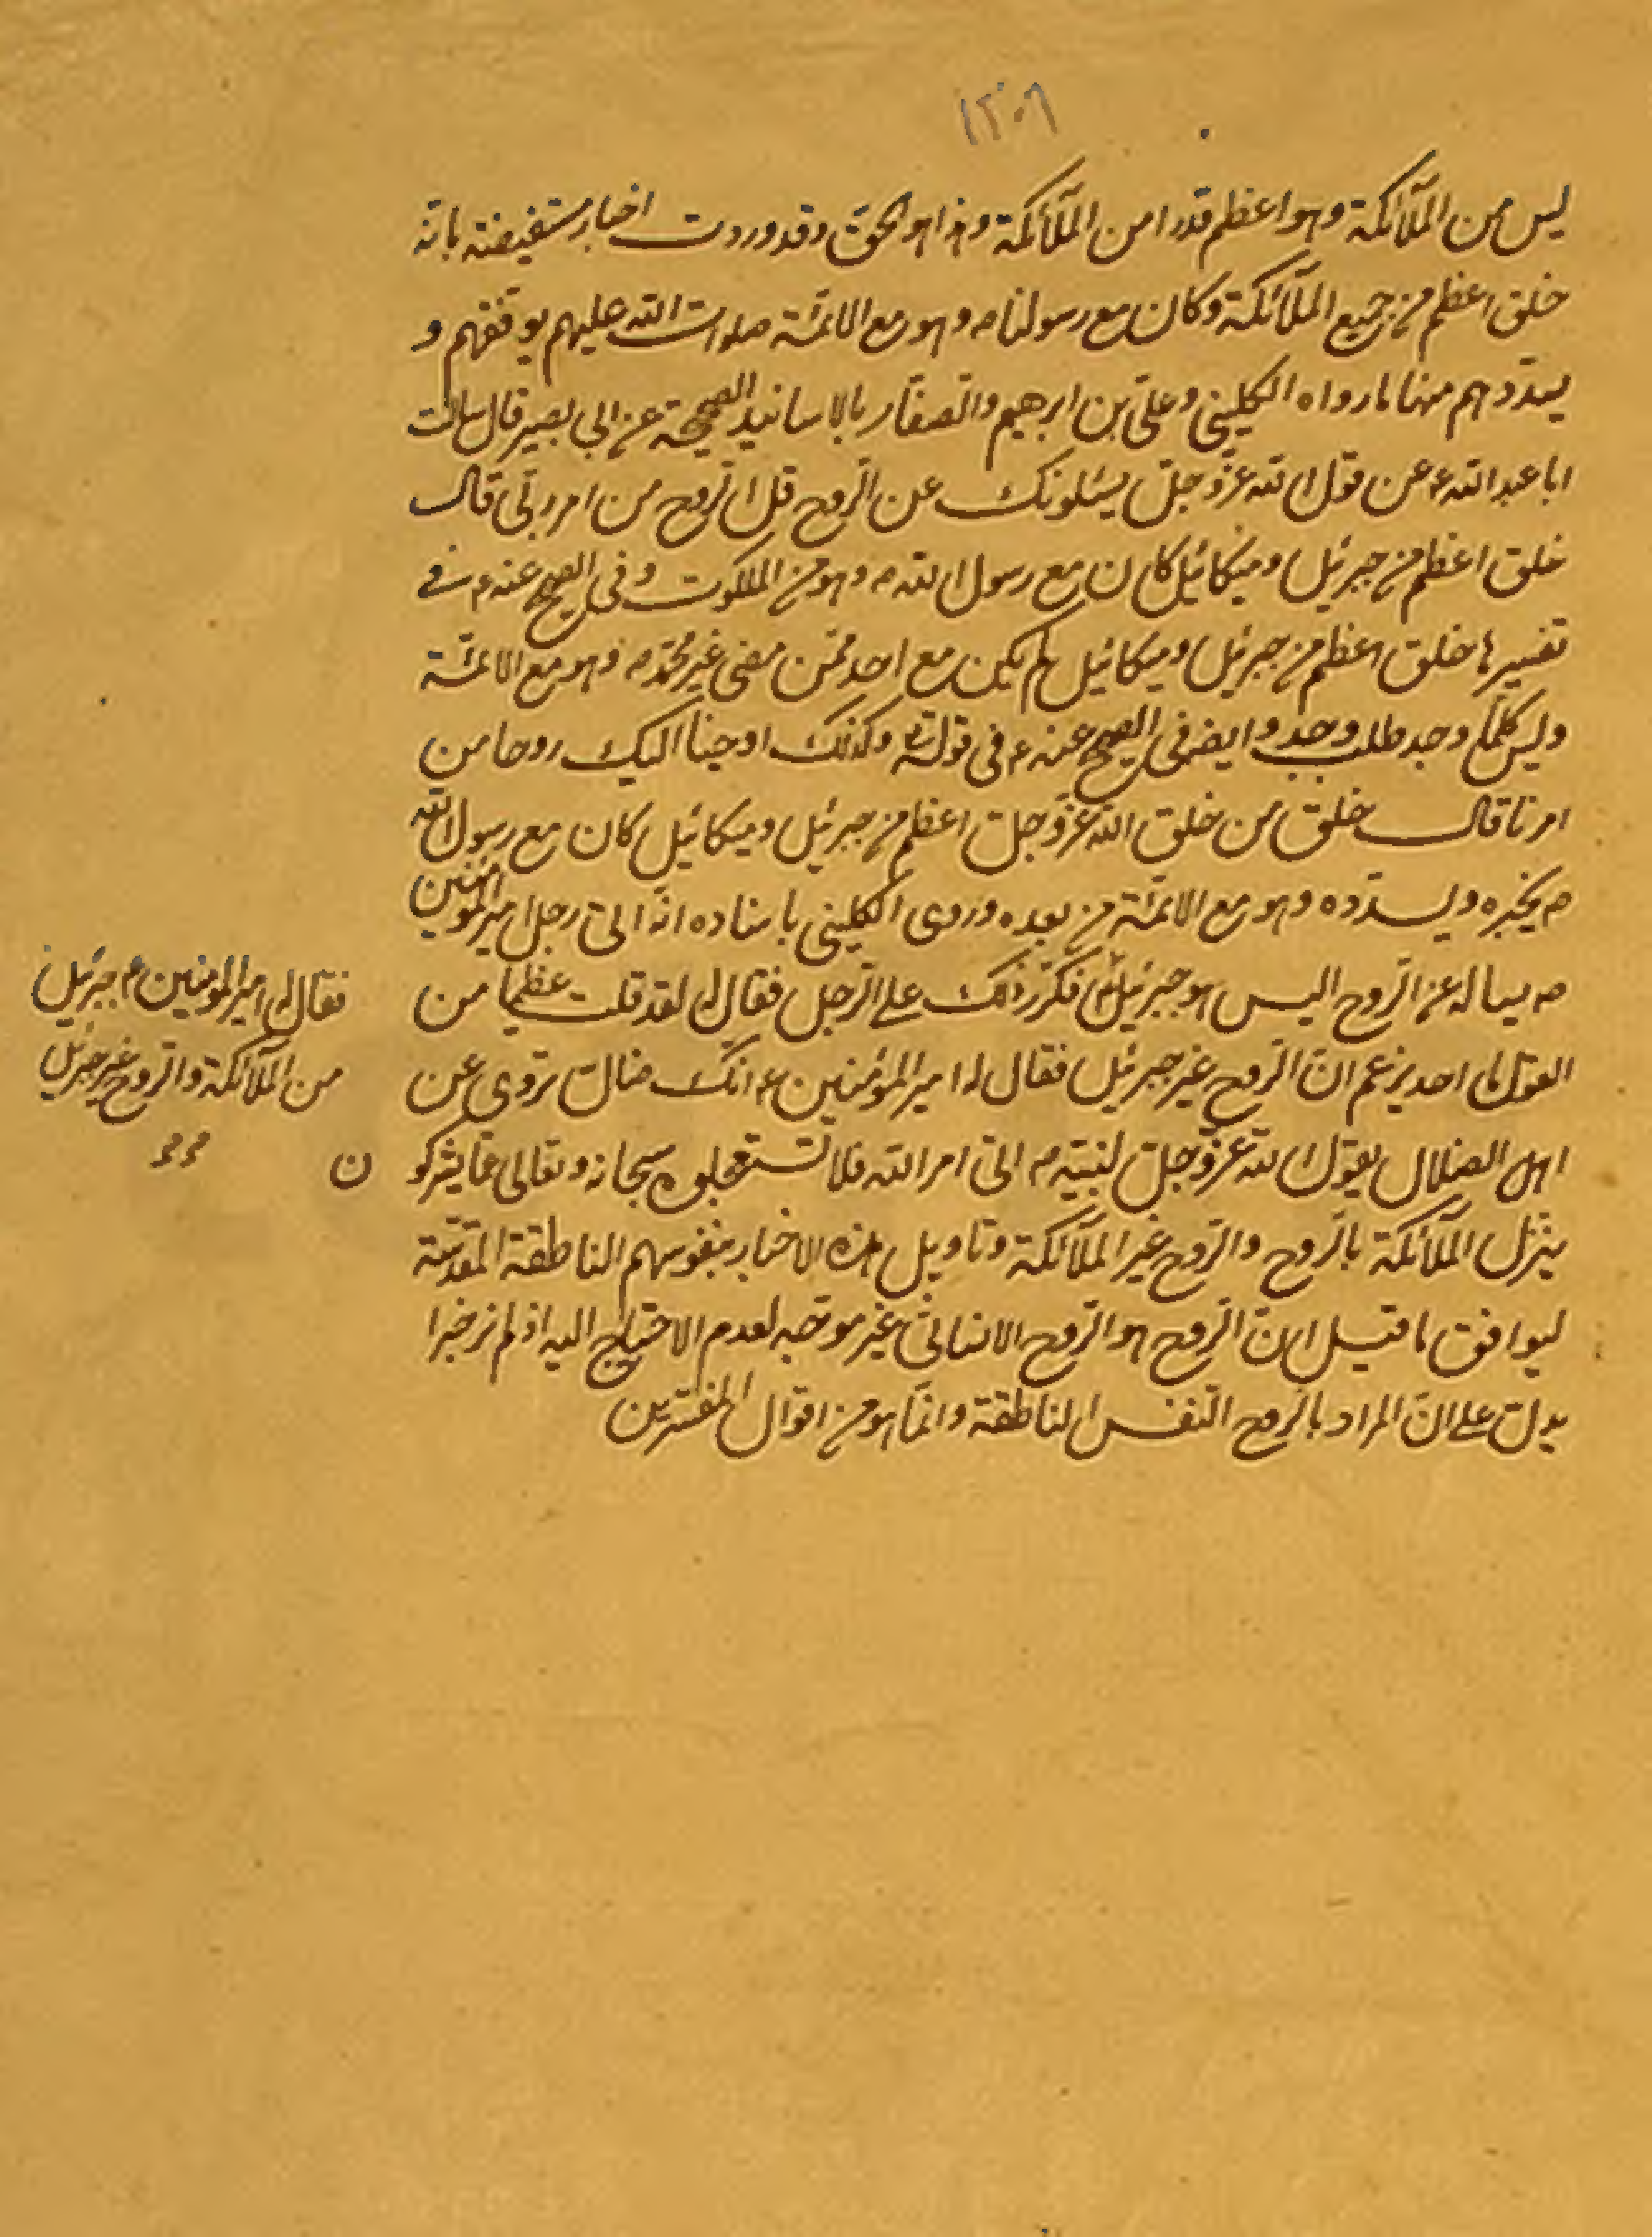 ١٢٠٦
ليس من الملآئكة وهو اعظم قدرا من الملآئكة وهذا هو الحقّ وقد وردت اخبار مستفيضة بانّه
خلق اعظم من جميع الملآئكة وكان مع رسولنا ص وهو مع الائمّة صلوات الله عليهم يوفقهم و
يسدّدهم منها ما رواه الكلينى وعلىّ بن ابرهيم والصفّار بالاسانيد الصحيحة عن ابى بصير قال سالت
ابا عبد الله ع عن قول الله عزّوجلّ يسئلونك عن الرّوح قل الرّوح من امر ربّى قال
خلق اعظم من جبرئيل وميكائيل كان مع رسول الله ص وهو من الملكوت وفى الصحيح عنه ع فى
تفسيرها خلق اعظم من جبرئيل وميكائيل لم يكن مع احد ممّن مضى غير محمّد ص وهو مع الائمّة
وليس كلّما وجد طلب وجد وايضا فى الصحيح عنه ع فى قوله تع وكذلك اوحينا اليك روحا من
امرنا قال خلق من خلق الله عزّوجلّ اعظم من جبرئيل وميكائيل كان مع رسول الله
ص يخبره ويسدّده وهو مع الائمّة من بعده وروى الكلينى باسناده انّه اتى رجل امير المؤمنين
ص يساله عن الرّوح اليس هو جبرئيل فكرّر ذلك على الرّجل فقال له لقد قلت عظيما من
القول ما احد يزعم انّ الرّوح غير جبرئيل فقال له امير المؤمنين ع انّك ضالّ تروى عن
اهل الضلال يقول الله عزّوجلّ لنبيّه ص اتى امر الله فلا تستعجلوه سبحانه وتعالى عمّا يشركو ن
ينزّل الملآئكة بالرّوح والرّوح غير الملآئكة وتاويل هذه الاخبار بنفوسهم الناطقة المقدّسة
ليوافق ما قيل انّ الرّوح هو الرّوح الانسانىّ غير موجّه لعدم الاحتياج اليه اذ لم نر خبرا
يدلّ على انّ المراد بالرّوح النّفس الناطقة وانّما هو من اقوال المفسّرين
فقال له امير المؤمنين ع جبرئيل
من الملآئكة والرّوح غير جبرئيل